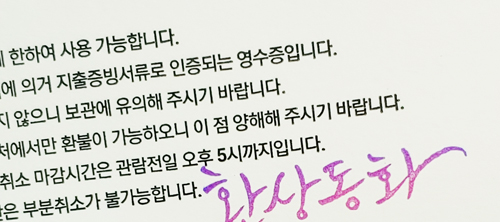 한하여 사용 가능합니다.
에 의거 지출증빙서류로 인증되는 영수증입니다.
않으니 보관에 유의해 주시기 바랍니다.
처에서만 환불이 가능하오니 이 점 양해해 주시기 바랍니다.
취소 마감시간은 관람전일 오후 5시까지입니다.
은 부분취소가 불가능합니다.
환상동화